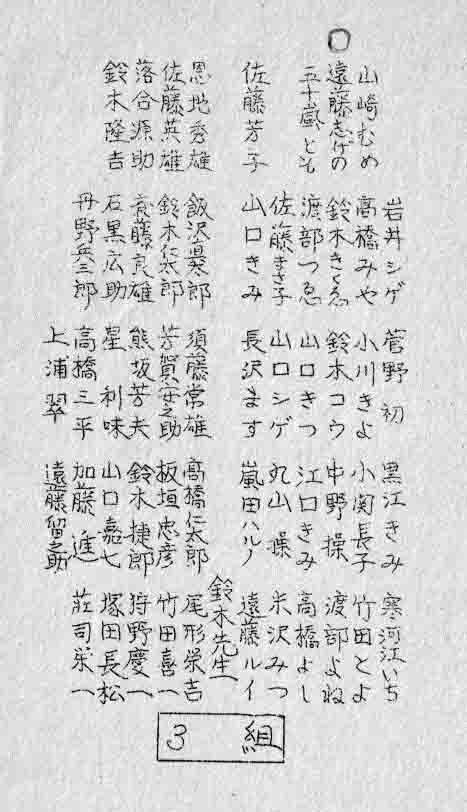 山崎むめ
遠藤志げの
五十嵐とも
佐藤芳子
恩地秀雄
佐藤英雄
落合源助
鈴木隆吉
岩井シゲ
高橋みや
鈴木きくゑ
渡部つゑ
佐藤まさ子
山口きみ
鈴木仁太郎
石黒広助
丹野兵三郎
菅野初
小川きよ
鈴木コウ
山口きつ
山口シゲ
長沢ます
須藤常雄
芳賀安之助
熊坂芳夫
星利味
高橋三平
上浦翠
黒江きみ
小関長子
中野操
江口きみ
丸山操
嵐田ハルノ
高橋仁太郎
板垣忠彦
鈴木捷郎
山口嘉七
加藤進
遠藤留之助
寒河江いち
竹田とよ
渡部よね
高橋よし
米沢みつ
遠藤ルイ
鈴木先生
尾形栄吉
竹田喜一
狩野慶一
塚田長松
荘司栄一
3 組